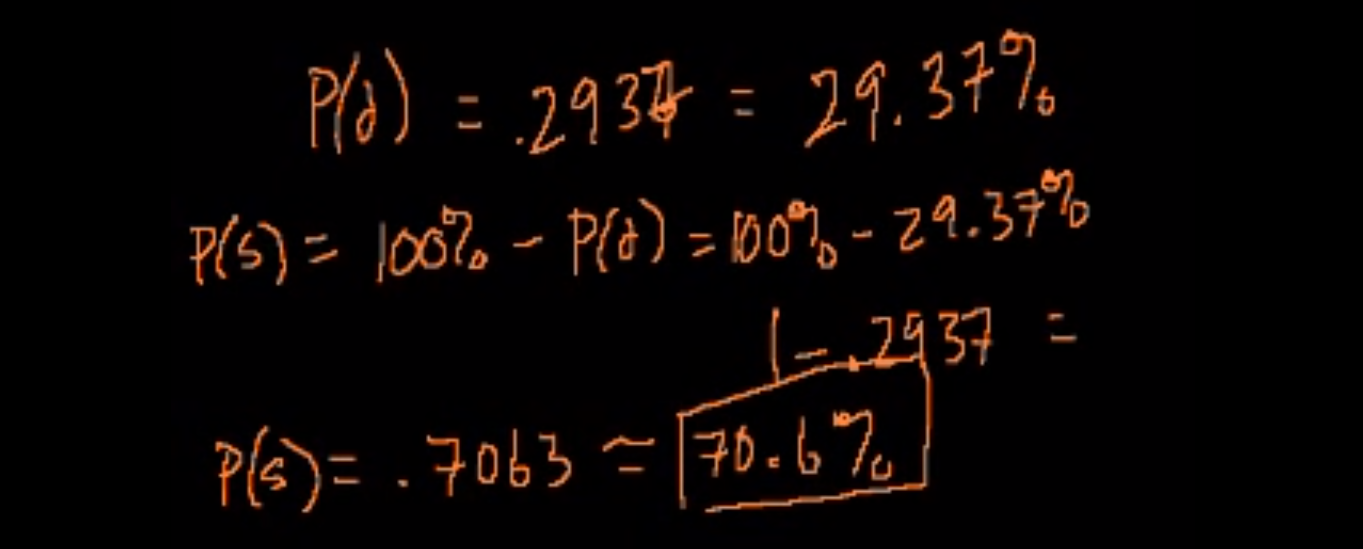 P(d) = .2937 = 29.37%
P(s) = 100% - P(d) = 100% - 29.37%
1 - .2937 =
P(s) = .7063 ≈ 70.6%